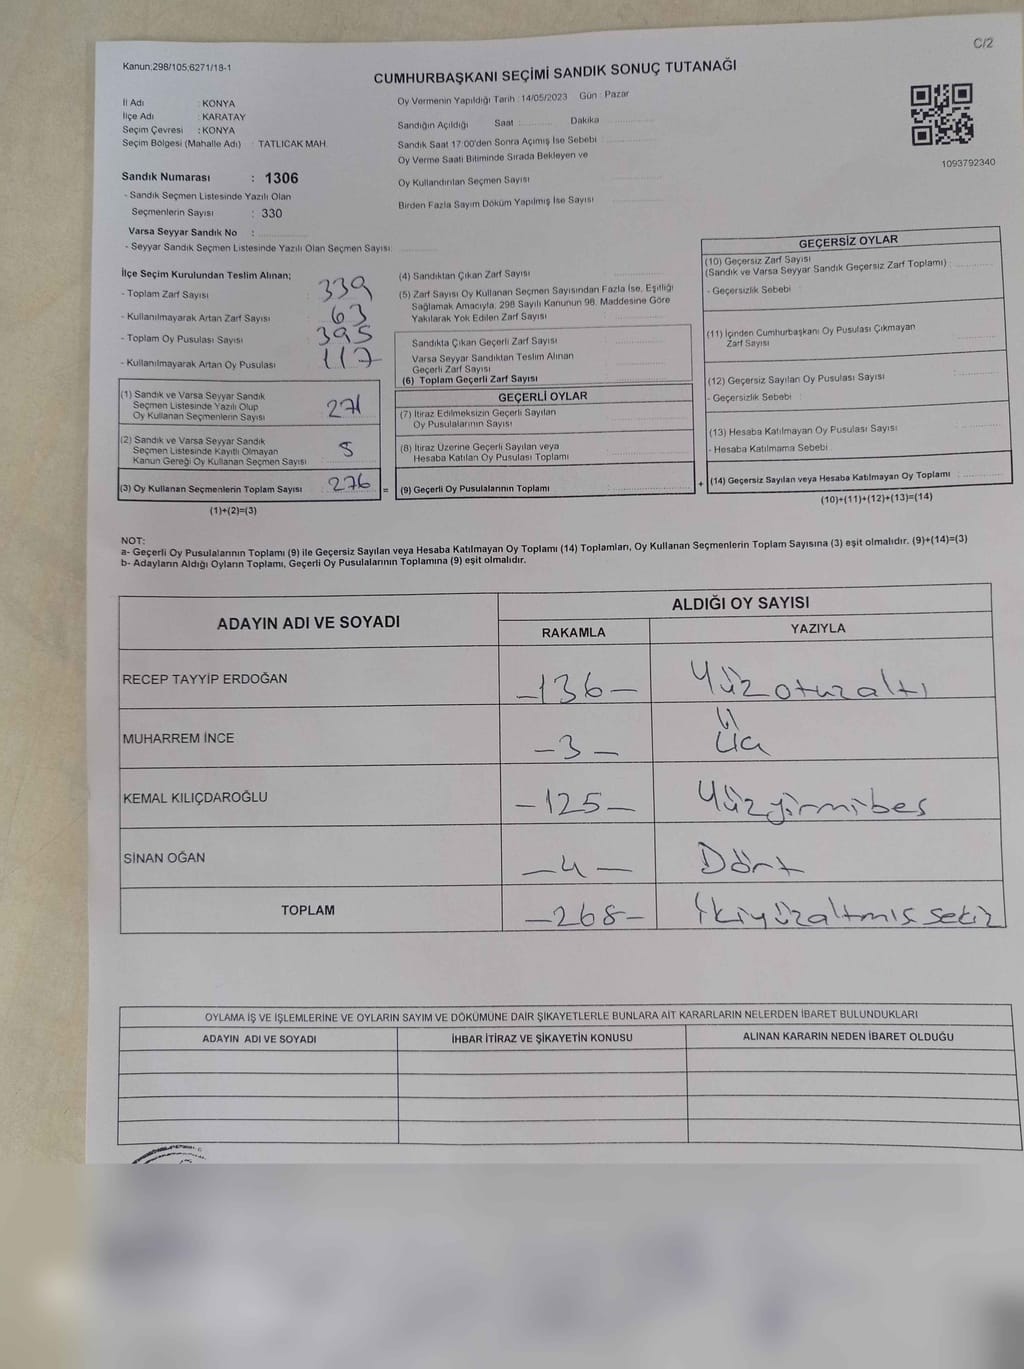 C/2
Kanun:298/105,6271/18-1
CUMHURBAŞKANI SEÇİMİ SANDIK SONUÇ TUTANAĞI
İl Adı : KONYA
İlçe Adı : KARATAY
Seçim Çevresi : KONYA
Seçim Bölgesi (Mahalle Adı) : TATLICAK MAH.
Sandık Numarası : 1306
- Sandık Seçmen Listesinde Yazılı Olan
Seçmenlerin Sayısı : 330
Varsa Seyyar Sandık No :
- Seyyar Sandık Seçmen Listesinde Yazılı Olan Seçmen Sayısı:
Oy Vermenin Yapıldığı Tarih : 14/05/2023 Gün : Pazar
Sandığın Açıldığı Saat : Dakika
Sandık Saat 17:00'den Sonra Açımış İse Sebebi :
Oy Verme Saati Bitiminde Sırada Bekleyen ve
Oy Kullandırılan Seçmen Sayısı
Birden Fazla Sayım Döküm Yapılmış İse Sayısı
1093792340
İlçe Seçim Kurulundan Teslim Alınan;
- Toplam Zarf Sayısı : 339
- Kullanılmayarak Artan Zarf Sayısı : 63
- Toplam Oy Pusulası Sayısı : 395
- Kullanılmayarak Artan Oy Pusulası : 117
(1) Sandık ve Varsa Seyyar Sandık
Seçmen Listesinde Yazılı Olup
Oy Kullanan Seçmenlerin Sayısı : 271
(2) Sandık ve Varsa Seyyar Sandık
Seçmen Listesinde Kayıtlı Olmayan
Kanun Gereği Oy Kullanan Seçmen Sayısı : 5
(3) Oy Kullanan Seçmenlerin Toplam Sayısı : 276 =
(1)+(2)=(3)
(4) Sandıktan Çıkan Zarf Sayısı
(5) Zarf Sayısı Oy Kullanan Seçmen Sayısından Fazla İse, Eşitliği
Sağlamak Amacıyla, 298 Sayılı Kanunun 98. Maddesine Göre
Yakılarak Yok Edilen Zarf Sayısı
Sandıkta Çıkan Geçerli Zarf Sayısı
Varsa Seyyar Sandıktan Teslim Alınan
Geçerli Zarf Sayısı
(6) Toplam Geçerli Zarf Sayısı
GEÇERLİ OYLAR
(7) İtiraz Edilmeksizin Geçerli Sayılan
Oy Pusulalarının Sayısı
(8) İtiraz Üzerine Geçerli Sayılan veya
Hesaba Katılan Oy Pusulası Toplamı
(9) Geçerli Oy Pusulalarının Toplamı +
GEÇERSİZ OYLAR
(10) Geçersiz Zarf Sayısı
(Sandık ve Varsa Seyyar Sandık Geçersiz Zarf Toplamı) :
- Geçersizlik Sebebi :
(11) İçinden Cumhurbaşkanı Oy Pusulası Çıkmayan
Zarf Sayısı
(12) Geçersiz Sayılan Oy Pusulası Sayısı
- Geçersizlik Sebebi :
(13) Hesaba Katılmayan Oy Pusulası Sayısı
- Hesaba Katılmama Sebebi :
(14) Geçersiz Sayılan veya Hesaba Katılmayan Oy Toplamı :
(10)+(11)+(12)+(13)=(14)
NOT:
a- Geçerli Oy Pusulalarının Toplamı (9) ile Geçersiz Sayılan veya Hesaba Katılmayan Oy Toplamı (14) Toplamları, Oy Kullanan Seçmenlerin Toplam Sayısına (3) eşit olmalıdır. (9)+(14)=(3)
b- Adayların Aldığı Oyların Toplamı, Geçerli Oy Pusulalarının Toplamına (9) eşit olmalıdır.
ADAYIN ADI VE SOYADI
ALDIĞI OY SAYISI
RAKAMLA YAZIYLA
RECEP TAYYİP ERDOĞAN -136- Yüzotuzaltı
MUHARREM İNCE -3- Üç
KEMAL KILIÇDAROĞLU -125- Yüzyirmibeş
SİNAN OĞAN -4- Dört
TOPLAM -268- İkiyüzaltmışsekiz
OYLAMA İŞ VE İŞLEMLERİNE VE OYLARIN SAYIM VE DÖKÜMÜNE DAİR ŞİKAYETLERLE BUNLARA AİT KARARLARIN NELERDEN İBARET BULUNDUKLARI
ADAYIN ADI VE SOYADI İHBAR İTİRAZ VE ŞİKAYETİN KONUSU ALINAN KARARIN NEDEN İBARET OLDUĞU